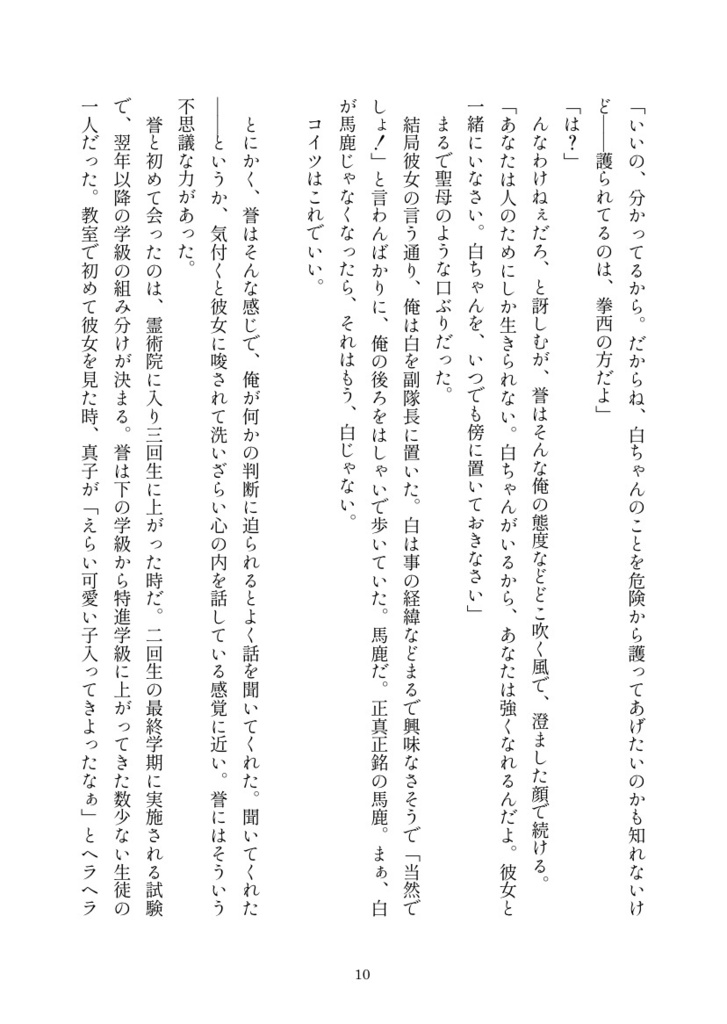 「いいの、分かってるから。だからね、白ちゃんのことを危険から護ってあげたいのかも知れないけ
ど――護られてるのは、拳西の方だよ」
「は？」
んなわけねぇだろ、と訝しむが、誉はそんな俺の態度などどこ吹く風で、澄ました顔で続ける。
「あなたは人のためにしか生きられない。白ちゃんがいるから、あなたは強くなれるんだよ。彼女と
一緒にいなさい。白ちゃんを、いつでも傍に置いておきなさい」
まるで聖母のような口ぶりだった。
結局彼女の言う通り、俺は白を副隊長に置いた。白は事の経緯などまるで興味なさそうで「当然で
しょ！」と言わんばかりに、俺の後ろをはしゃいで歩いていた。馬鹿だ。正真正銘の馬鹿。まぁ、白
が馬鹿じゃなくなったら、それはもう、白じゃない。
コイツはこれでいい。
とにかく、誉はそんな感じで、俺が何かの判断に迫られるとよく話を聞いてくれた。聞いてくれた
――というか、気付くと彼女に唆されて洗いざらい心の内を話している感覚に近い。誉にはそういう
不思議な力があった。
誉と初めて会ったのは、霊術院に入り三回生に上がった時だ。二回生の最終学期に実施される試験
で、翌年以降の学級の組み分けが決まる。誉は下の学級から特進学級に上がってきた数少ない生徒の
一人だった。教室で初めて彼女を見た時、真子が「えらい可愛い子入ってきよったなぁ」とヘラヘラ
10